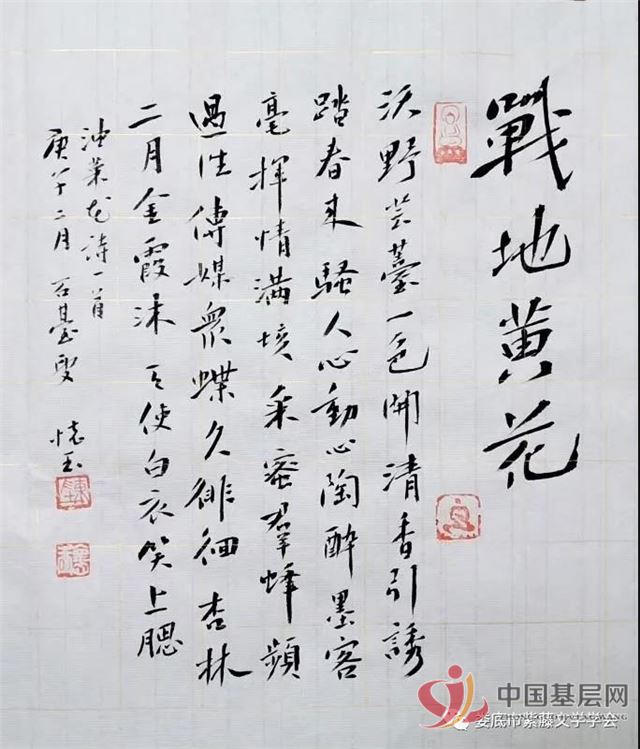 戰地黄花
沃野芸薹一色開清香引誘
踏春来騷人心動心陶醉墨客
毫揮情滿垓采蜜羣蜂頻
過往傳媒衆蝶久徘徊杏林
二月金霞沐天使白衣笑上腮
油菜花詩一首
庚子二月 叟 懷玉
中国基层网
娄底市紫藤文学学会